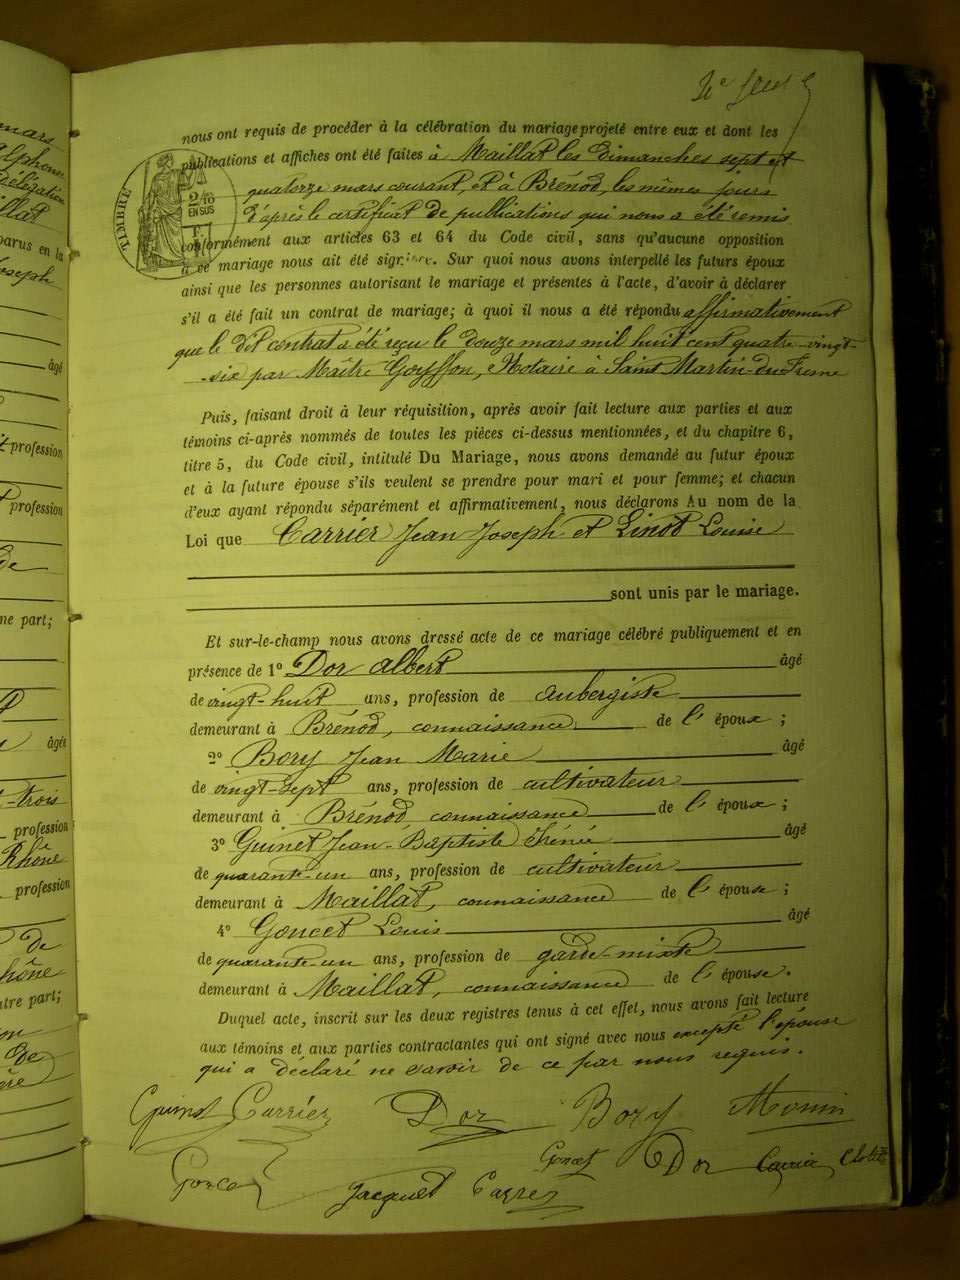 nous ont requis de procéder à la célébration du mariage projeté entre eux et dont les
publications et affiches ont été faites à Maillat les Dimanches sept et
quatorze mars courant, et à Brénod, les mêmes jours
d'après le certificat de publications qui nous a été remis
conformément aux articles 63 et 64 du Code civil, sans qu'aucune opposition
à ce mariage nous ait été signifiée. Sur quoi nous avons interpellé les futurs époux
ainsi que les personnes autorisant le mariage et présentes à l'acte, d'avoir à déclarer
s'il a été fait un contrat de mariage; à quoi il nous a été répondu affirmativement
que le dit contrat a été reçu le douze mars mil huit cent quatre-vingt
-six par Maître Goyffon, Notaire à Saint Martin-du-Fresne
Puis, faisant droit à leur réquisition, après avoir fait lecture aux parties et aux
témoins ci-après nommés de toutes les pièces ci-dessus mentionnées, et du chapitre 6,
titre 5, du Code civil, intitulé Du Mariage, nous avons demandé au futur époux
et à la future épouse s'ils veulent se prendre pour mari et pour femme; et chacun
d'eux ayant répondu séparément et affirmativement, nous déclarons Au nom de la
Loi que Carrier Jean Joseph et Linot Louise
sont unis par le mariage.
Et sur-le-champ nous avons dressé acte de ce mariage célébré publiquement et en
présence de 1º Dor Albert âgé
de vingt-huit ans, profession de aubergiste
demeurant à Brénod, connaissance de l'époux;
2º Bory Jean Marie âgé
de vingt-sept ans, profession de cultivateur
demeurant à Brénod connaissance de l'époux;
3º Guinet Jean-Baptiste Irénée âgé
de quarante-un ans, profession de cultivateur
demeurant à Maillat, connaissance de l'épouse;
4º Goncet Louis âgé
de quarante-un ans, profession de garde-mixte
demeurant à Maillat, connaissance de l'épouse.
Duquel acte, inscrit sur les deux registres tenus à cet effet, nous avons fait lecture
aux témoins et aux parties contractantes qui ont signé avec nous excepté l'épouse
qui a déclaré ne savoir de ce par nous requis.
Guinet Carrier Dor Bory Monin
Goncet Dor Carrier
Goncet Jacquet Carrier
TIMBRE
2/10
EN SUS
âgé
profession
profession